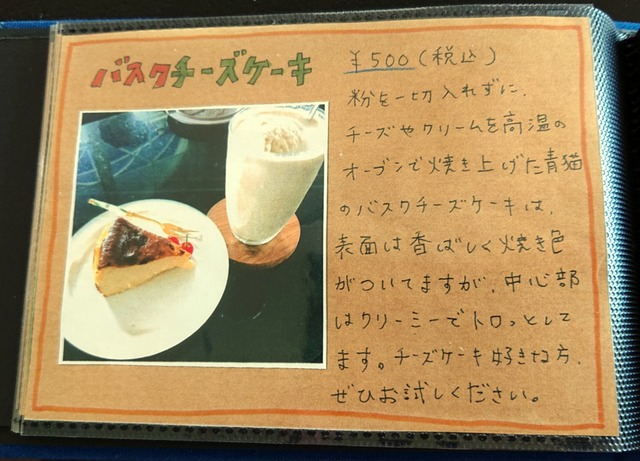 バスクチーズケーキ
¥500(税込)
粉を一切入れずに、
チーズやクリームを高温の
オーブンで焼き上げた青猫
のバスクチーズケーキは、
表面は香ばしく焼き色
がついてますが、中心部
はクリーミーでトロっとして
ます。チーズケーキ好きな方、
ぜひお試しください。